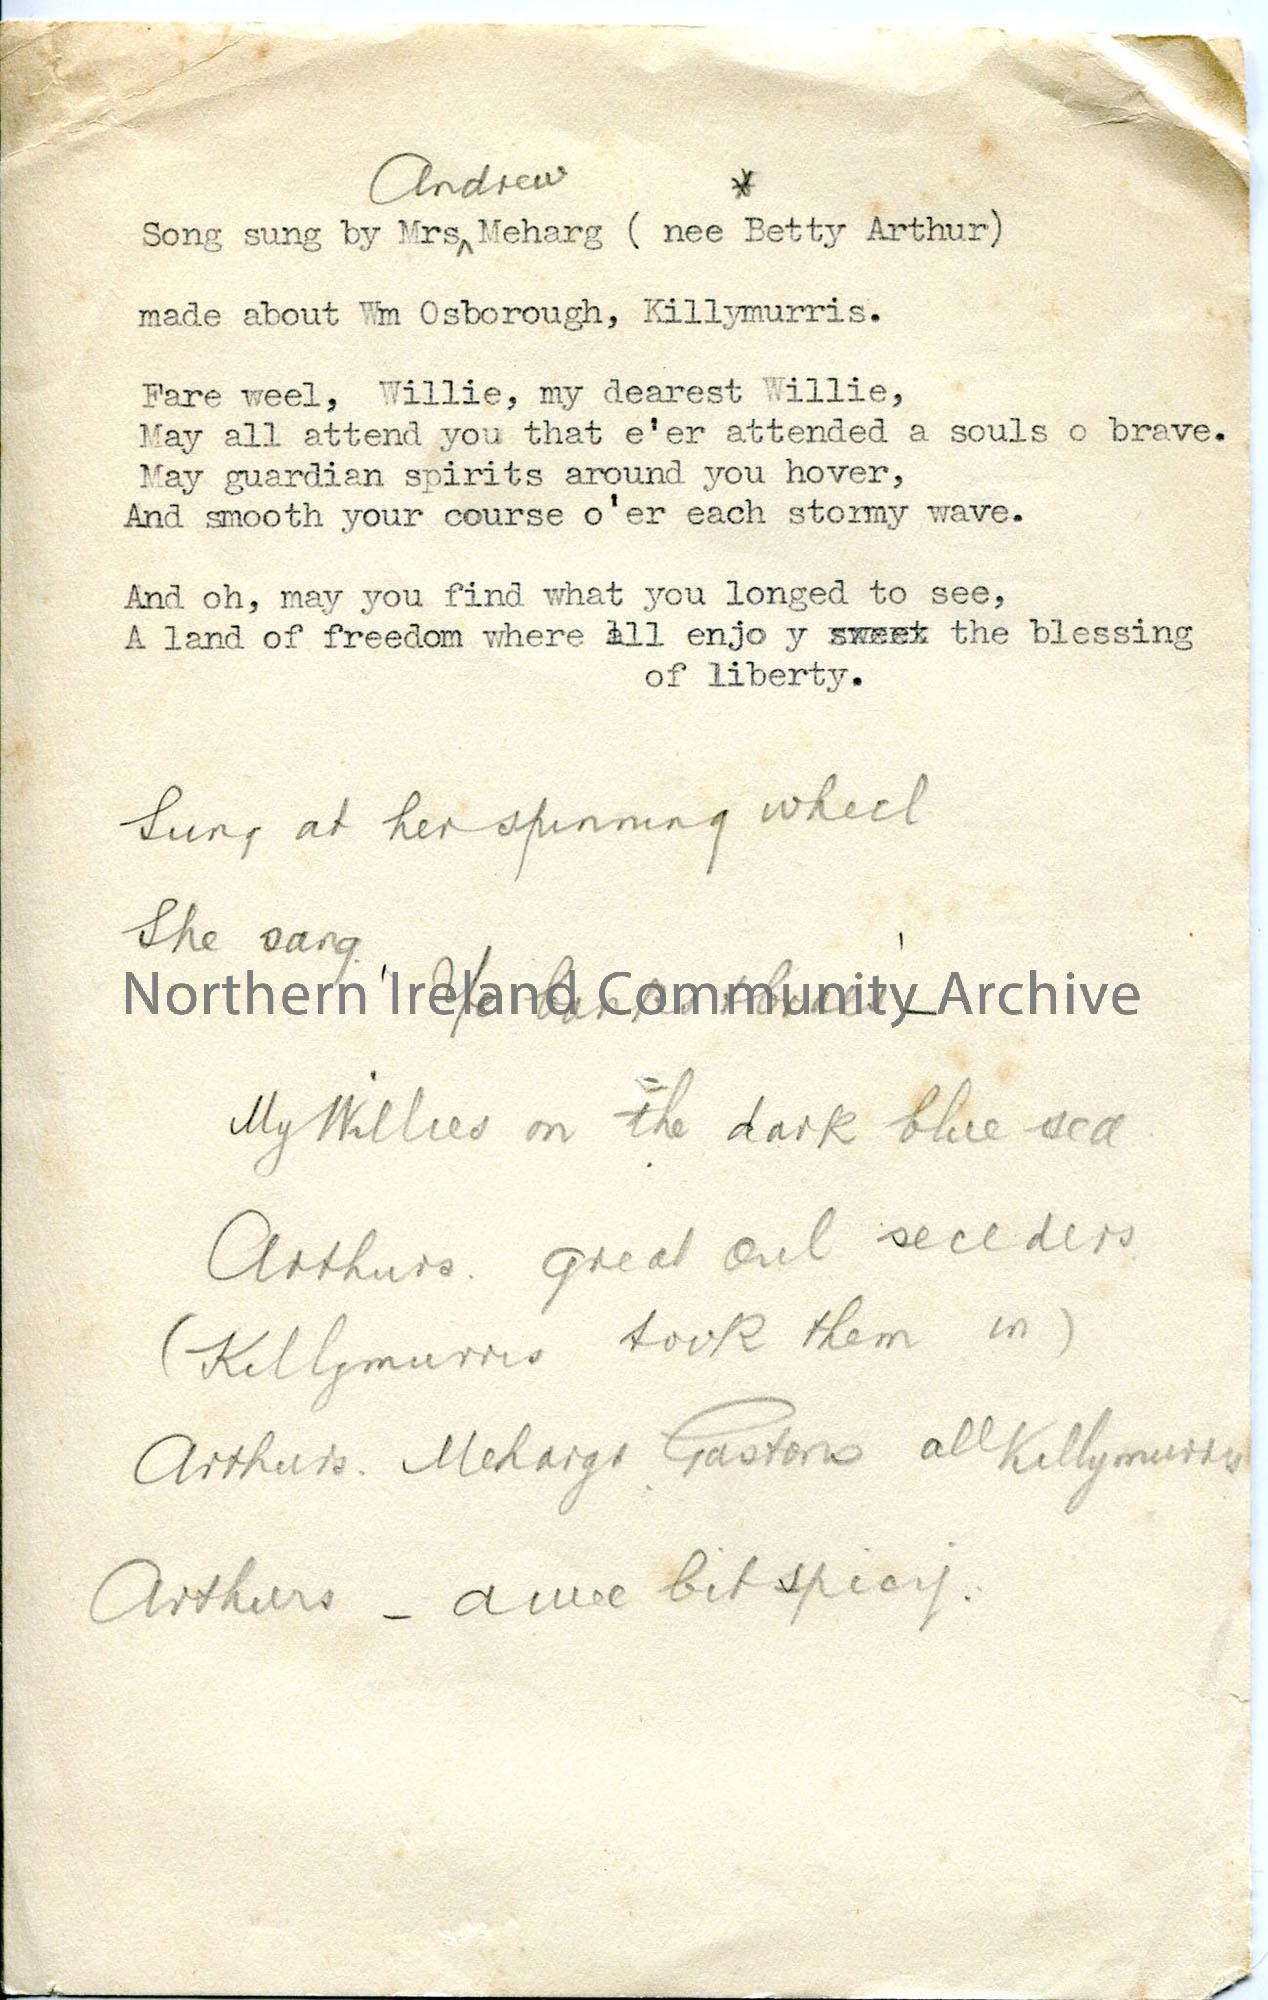 Andrew *
Song sung by Mrs^ Meharg ( nee Betty Arthur)
made about Wm Osborough, Killymurris.
Fare weel, Willie, my dearest Willie,
May all attend you that e'er attended a souls o brave.
May guardian spirits around you hover,
And smooth your course o'er each stormy wave.
And oh, may you find what you longed to see,
A land of freedom where all enjo y sweet the blessing
of liberty.
Sung at her spinning wheel
She sang
'Ye
Northern Ireland Community Archive
My Willies on the dark blue sea
Arthurs. great oul seceders
(Killymurris took them in)
Arthurs. Mehargs. Gastons all Killymurris
Arthurs - a wee bit spicy.